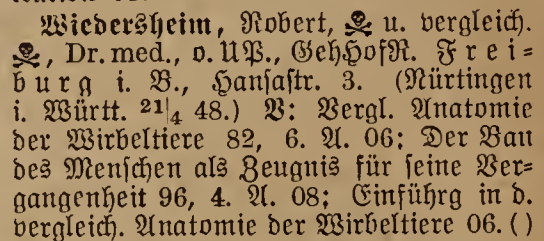 Wiedersheim, Robert, ☠ u. vergleich.
☠, Dr. med., o. UP., GehHofR. Frei=
burg i. B., Hansastr. 3. (Nürtingen
i. Württ. 21|4 48.) V: Vergl. Anatomie
der Wirbeltiere 82, 6. A. 06; Der Bau
des Menschen als Zeugnis für seine Ver=
gangenheit 96, 4. A. 08; Einführg in d.
vergleich. Anatomie der Wirbeltiere 06. ( )